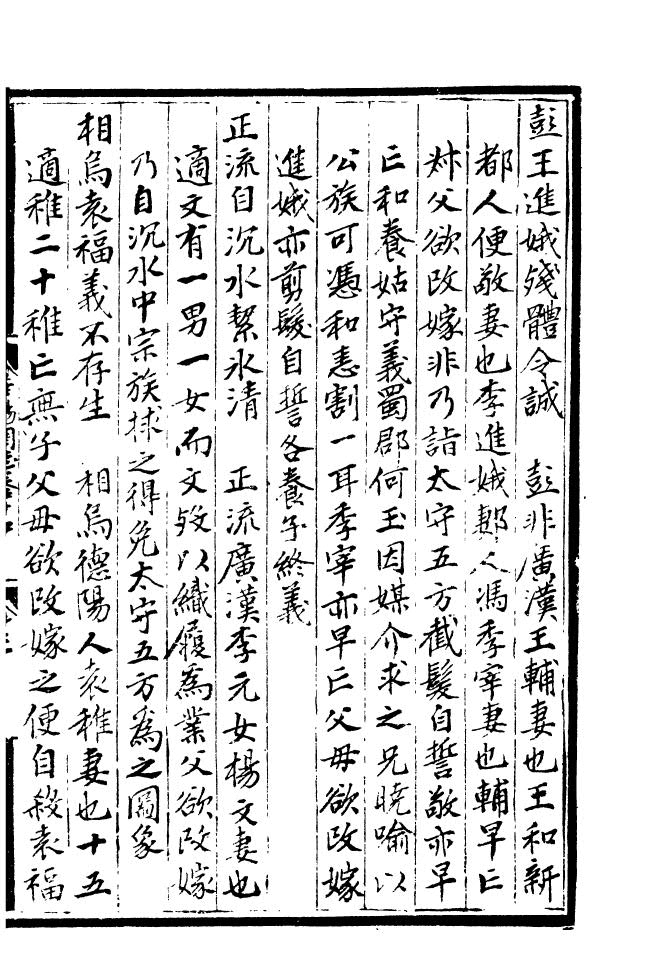 彭王進娥殘體令誠　彭非廣漢王輔妻也王和新
都人便敬妻也李進娥郪人馮季宰妻也輔早亡
叔父欲改嫁非乃詣太守五方截髮自誓敬亦早
亡和養姑守義蜀郡何玉因媒介求之兄曉喻以
公族可憑和恚割一耳季宰亦早亡父毋欲改嫁
進娥亦剪髮自誓各養子終義
正流自沉水絜氷清　正流廣漢李元女楊文妻也
適文有一男一女而文歿以織履為業父欲改嫁
乃自沉水中宗族捄之得免太守五方為之圖象
相烏袁福義不存生　相烏德陽人袁稚妻也十五
適稚二十稚亡無子父毋欲改嫁之便自殺袁福